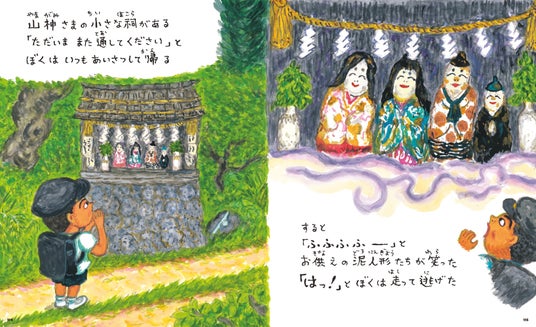 山神さまの小さな祠がある
「ただいま また通してください」と
ぼくは いつも あいさつして帰る
すると
「ふふふふー」と
お供えの泥人形たちが笑った
「はっ!」とぼくは走って逃げた